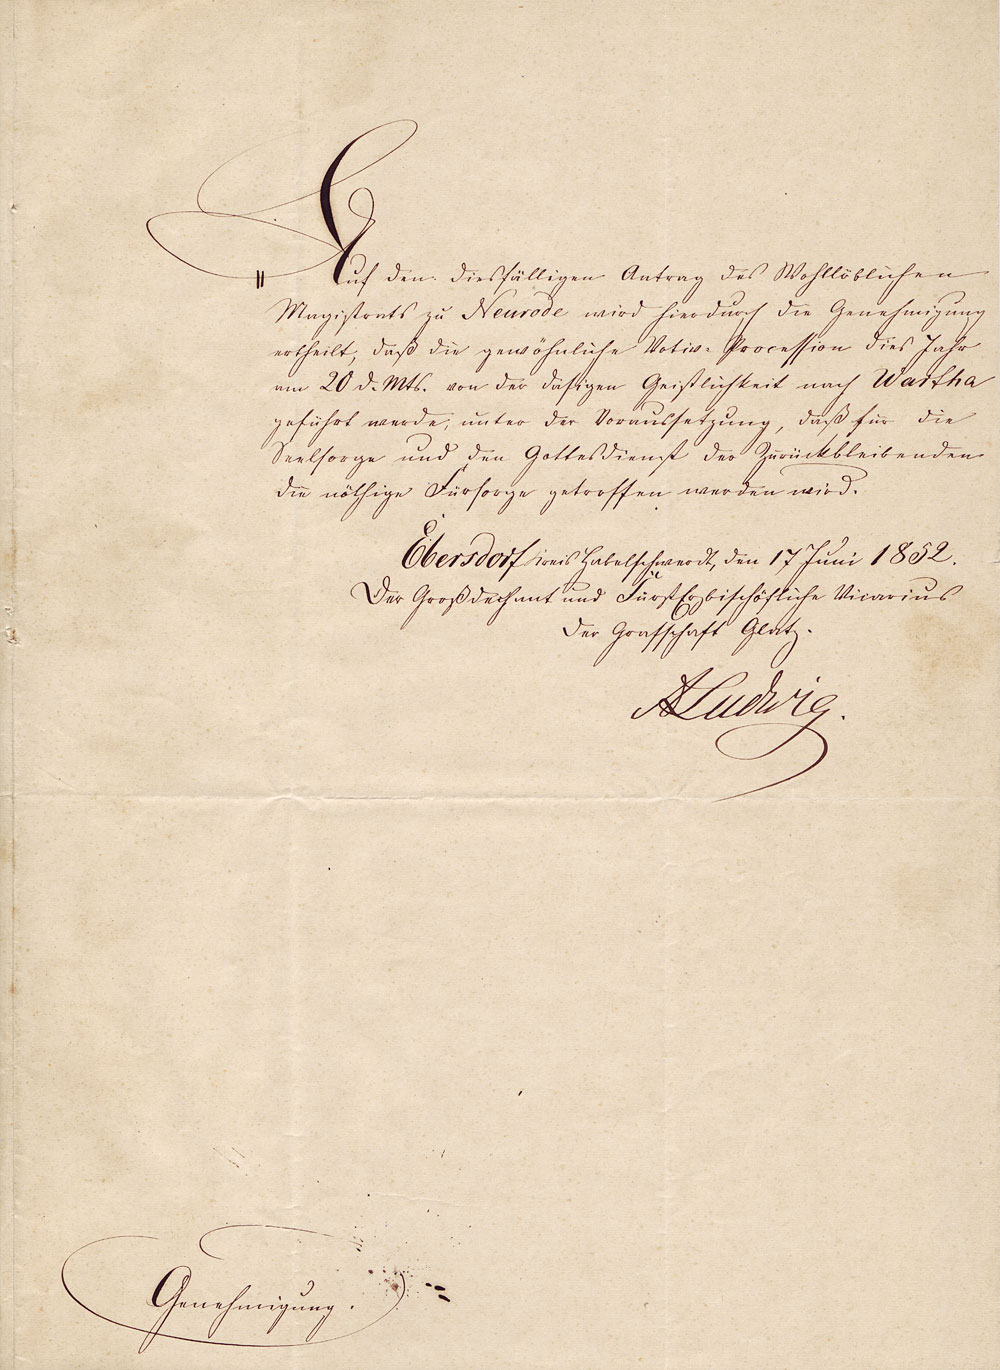 Auf den diesfälligen Antrag des Wohllöblichen
Magistrats zu Neurode wird hierdurch die Genehmigung
ertheilt, daß die gewöhnliche Votiv-Procession dies Jahr
am 20 d. Mts. von der dasigen Geistlichkeit nach Wartha
geführt werde, unter der Voraussetzung, daß für die
Seelsorge und den Gottesdienst der Zurückbleibenden
die nöthige Fürsorge getroffen werden wird.
Ebersdorf Kreis Habelschwerdt, den 17 Juni 1852.
Der Großdechant und FürstErzbischöfliche Vicarius
der Grafschaft Glatz.
A Ludwig.
Genehmigung.